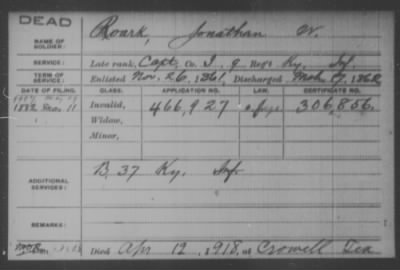 DEAD
NAME OF SOLDIER: Roark, Jonathan W.
SERVICE: Late rank, Capt, Co. I, 9 Reg't Ky. Inf.
TERM OF SERVICE: Enlisted Nov. 26, 1861, Discharged Mch 1862
DATE OF FILING. CLASS. APPLICATION NO. LAW. CERTIFICATE NO.
1882 11 Invalid, 466,927 306,856
Widow,
Minor,
ADDITIONAL SERVICES: B 37 Ky. Inf.
REMARKS:
Died Apr 12, 1918, at Crowell Tex